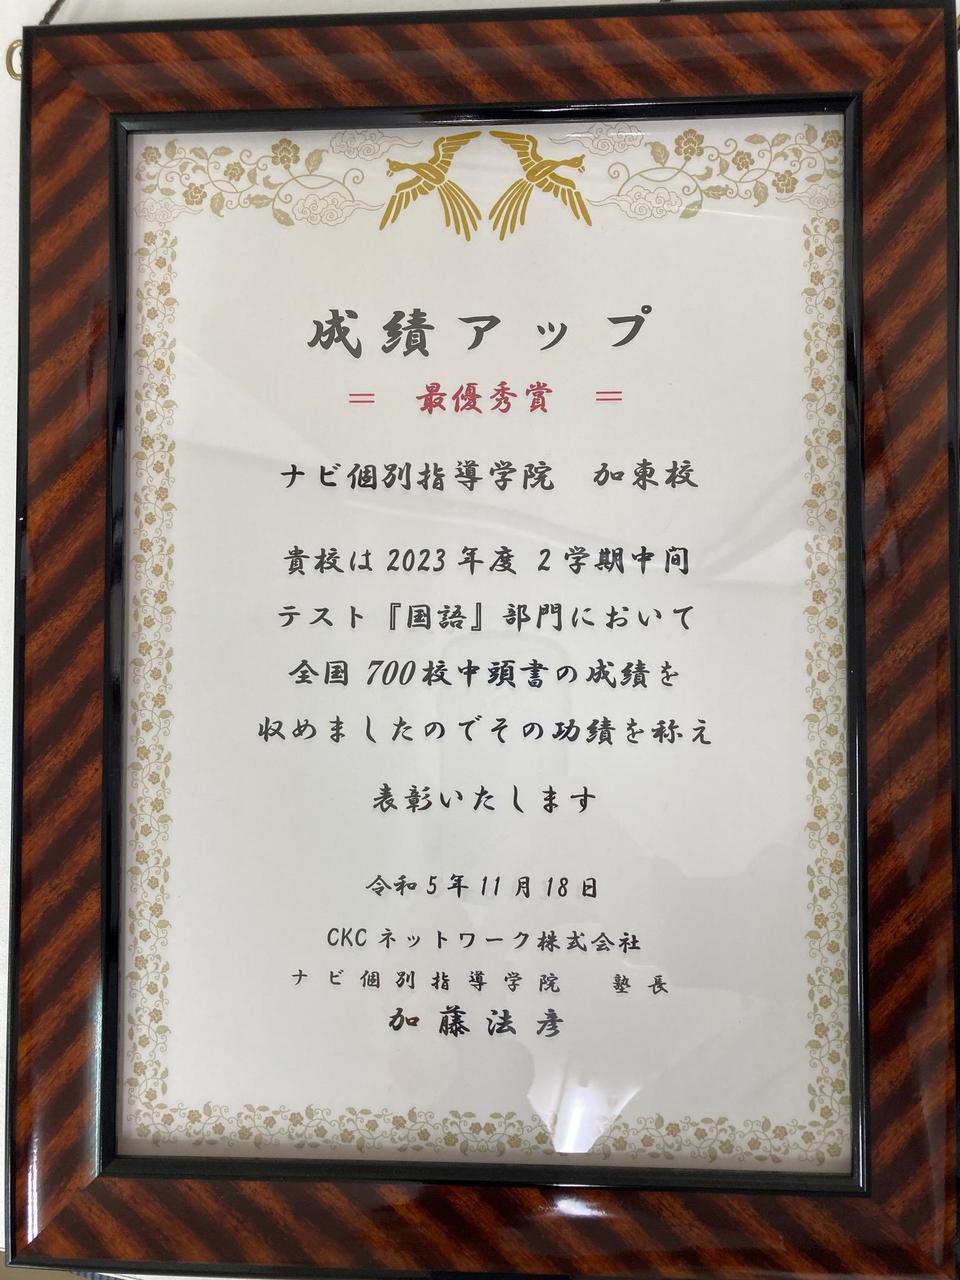 成績アップ
＝ 最優秀賞 ＝
ナビ個別指導学院 加東校
貴校は2023年度 2学期中間
テスト『国語』部門において
全国700校中頭書の成績を
収めましたのでその功績を称え
表彰いたします
令和5年11月18日
CKCネットワーク株式会社
ナビ個別指導学院 塾長
加藤法彦